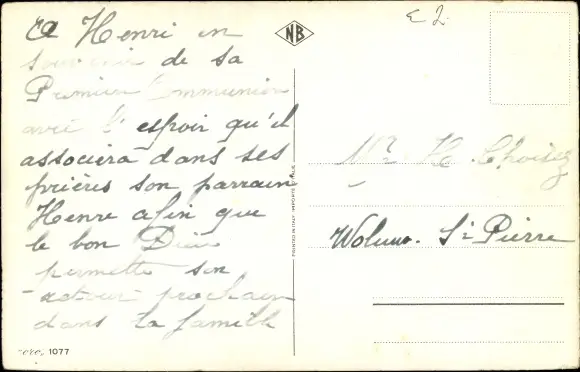 A Henri en
souvenir de sa
Première Communion
avec l'espoir qu'il
associera dans ses
prières son parrain
Henri afin que
le bon Dieu
permette son
retour prochain
dans la famille
1077
NB
E 2
Mr H. Choisez
Woluw. St Pierre